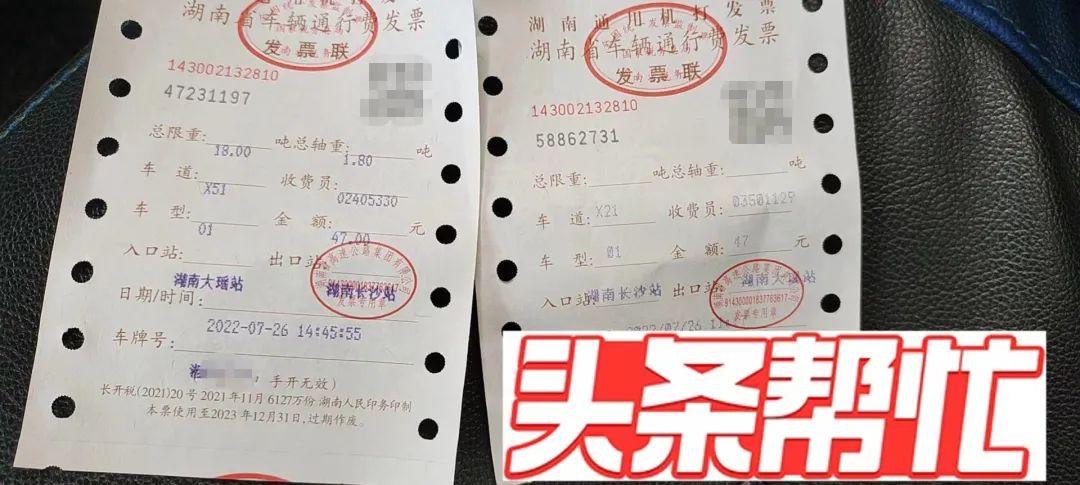 湖南省车辆通行费发票
发票联
143002132810
47231197
总限重: 18.00 吨总轴重: 1.80 吨
车道: X51 收费员: 02405330
车型: 01 金额: 47.00 元
入口站: 湖南大瑶站 出口站: 湖南长沙站
日期/时间: 2022-07-26 14:45:55
车牌号:
手开无效)
长开税(2021)20号 2021年11月 6127万份 湖南人民印务印制
本票使用至2023年12月31日,过期作废。
发票专用章
湖南通用机打发票
湖南省车辆通行费发票
发票联
143002132810
58862731
总限重: 吨总轴重: 吨
车道: X21 收费员: 03501129
车型: 01 金额: 47 元
入口站: 湖南长沙站 出口站: 湖南大瑶站
2022/07/26
发票专用章
头条帮忙